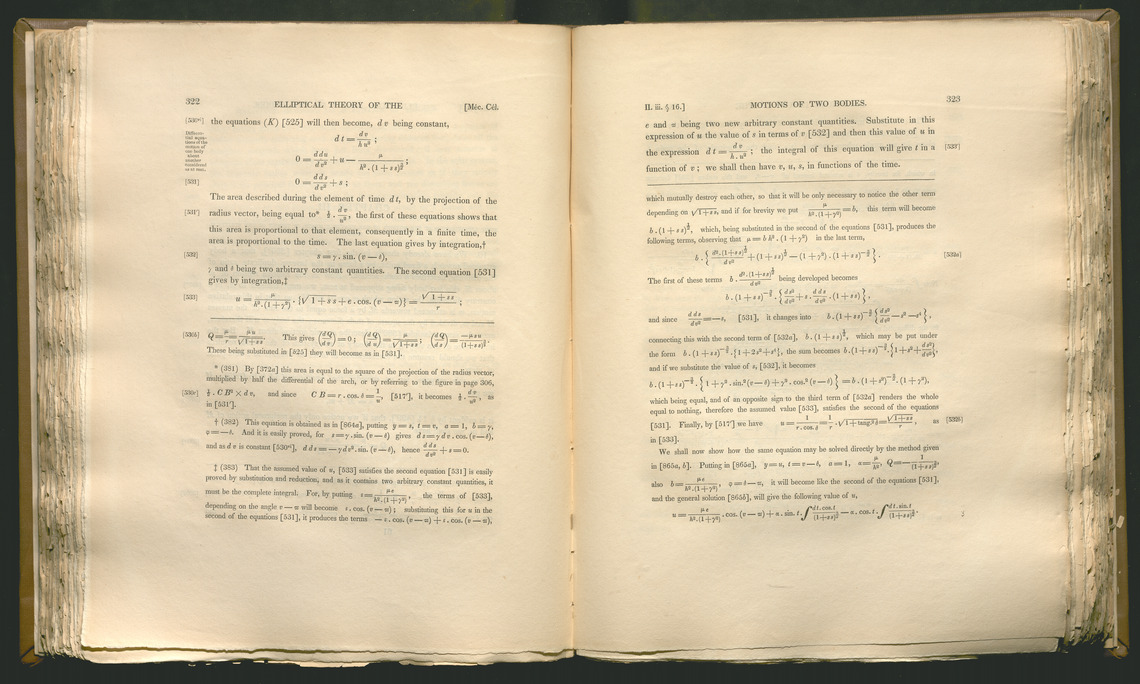 322
ELLIPTICAL THEORY OF THE
[Méc. Cél.
[530^vi] the equations (K) [525] will then become, d v being constant,
Differen-
tial equa-
tions of the
motion of
one body
about
another
considered
as at rest.
d t = d v / h u² ;
0 = d d u / d v² + u — μ / h² . (1 + s s)^{3/2} ;
[531] 0 = d d s / d v² + s ;
The area described during the element of time d t, by the projection of the
[531'] radius vector, being equal to* ½ . d v / u² , the first of these equations shows that
this area is proportional to that element, consequently in a finite time, the
area is proportional to the time. The last equation gives by integration,†
[532] s = γ . sin. (v — θ),
γ and θ being two arbitrary constant quantities. The second equation [531]
gives by integration,‡
[533] u = μ / h² . (1 + γ²) . {√1 + s s + e . cos. (v — ϖ)} = √1 + s s / r ;
[530b] Q = μ / r = μ u / √1 + s s . This gives (d Q / d v) = 0 ; (d Q / d u) = μ / √1 + s s ; (d Q / d s) = — μ s u / (1 + s s)^{3/2} .
These being substituted in [525] they will become as in [531].
* (381) By [372a] this area is equal to the square of the projection of the radius vector,
multiplied by half the differential of the arch, or by referring to the figure in page 306,
[530c] ½ . C B² × d v, and since C B = r . cos. θ = 1 / u , [517'], it becomes ½ . d v / u² , as
in [531'].
† (382) This equation is obtained as in [864a], putting y = s, t = v, a = 1, b = γ,
φ = — θ. And it is easily proved, for s = γ . sin. (v — θ) gives d s = γ d v . cos. (v — θ),
and as d v is constant [530^vi], d d s = — γ d v² . sin. (v — θ), hence d d s / d v² + s = 0.
‡ (383) That the assumed value of u, [533] satisfies the second equation [531] is easily
proved by substitution and reduction, and as it contains two arbitrary constant quantities, it
must be the complete integral. For, by putting ε = μ e / h² . (1 + γ²) , the terms of [533],
depending on the angle v — ϖ will become ε . cos. (v — ϖ) ; substituting this for u in the
second of the equations [531], it produces the terms — ε . cos. (v — ϖ) + ε . cos. (v — ϖ),
II. iii. § 16.]
MOTIONS OF TWO BODIES.
323
e and ϖ being two new arbitrary constant quantities. Substitute in this
expression of u the value of s in terms of v [532] and then this value of u in
the expression d t = d v / h . u² ; the integral of this equation will give t in a [533']
function of v ; we shall then have v, u, s, in functions of the time.
which mutually destroy each other, so that it will be only necessary to notice the other term
depending on √1 + s s, and if for brevity we put μ / h² . (1 + γ²) = b, this term will become
b . (1 + s s)^{1/2}, which, being substituted in the second of the equations [531], produces the
following terms, observing that μ = b h² . (1 + γ²) in the last term,
b . { d² . (1 + s s)^{1/2} / d v² + (1 + s s)^{1/2} — (1 + γ²) . (1 + s s)^{-3/2} } . [532a]
The first of these terms b . d² . (1 + s s)^{1/2} / d v² being developed becomes
b . (1 + s s)^{-3/2} . { d s² / d v² + s . d d s / d v² . (1 + s s) },
and since d d s / d v² = — s, [531], it changes into b . (1 + s s)^{-3/2} { d s² / d v² — s² — s⁴ },
connecting this with the second term of [532a], b . (1 + s s)^{1/2}, which may be put under
the form b . (1 + s s)^{-3/2} . {1 + 2 s² + s⁴}, the sum becomes b . (1 + s s)^{-3/2} . {1 + s² + d s² / d v²},
and if we substitute the value of s, [532], it becomes
b . (1 + s s)^{-3/2} . { 1 + γ² . sin.² (v — θ) + γ² . cos.² (v — θ) } = b . (1 + s²)^{-3/2} . (1 + γ²),
which being equal, and of an opposite sign to the third term of [532a] renders the whole
equal to nothing, therefore the assumed value [533], satisfies the second of the equations
[531]. Finally, by [517'] we have u = 1 / r . cos. θ = 1 / r . √1 + tang.² θ = √1 + s s / r , as [532b]
in [533].
We shall now show how the same equation may be solved directly by the method given
in [865a, b]. Putting in [865a], y = u, t = v — θ, a = 1, α = μ / h² , Q = — 1 / (1 + s s)^{3/2} ,
also b = μ e / h² . (1 + γ²) , φ = θ — ϖ, it will become like the second of the equations [531],
and the general solution [865b], will give the following value of u,
u = μ e / h² . (1 + γ²) . cos. (v — ϖ) + α . sin. t . ∫ d t . cos. t / (1 + s s)^{3/2} — α . cos. t . ∫ d t . sin. t / (1 + s s)^{3/2} .